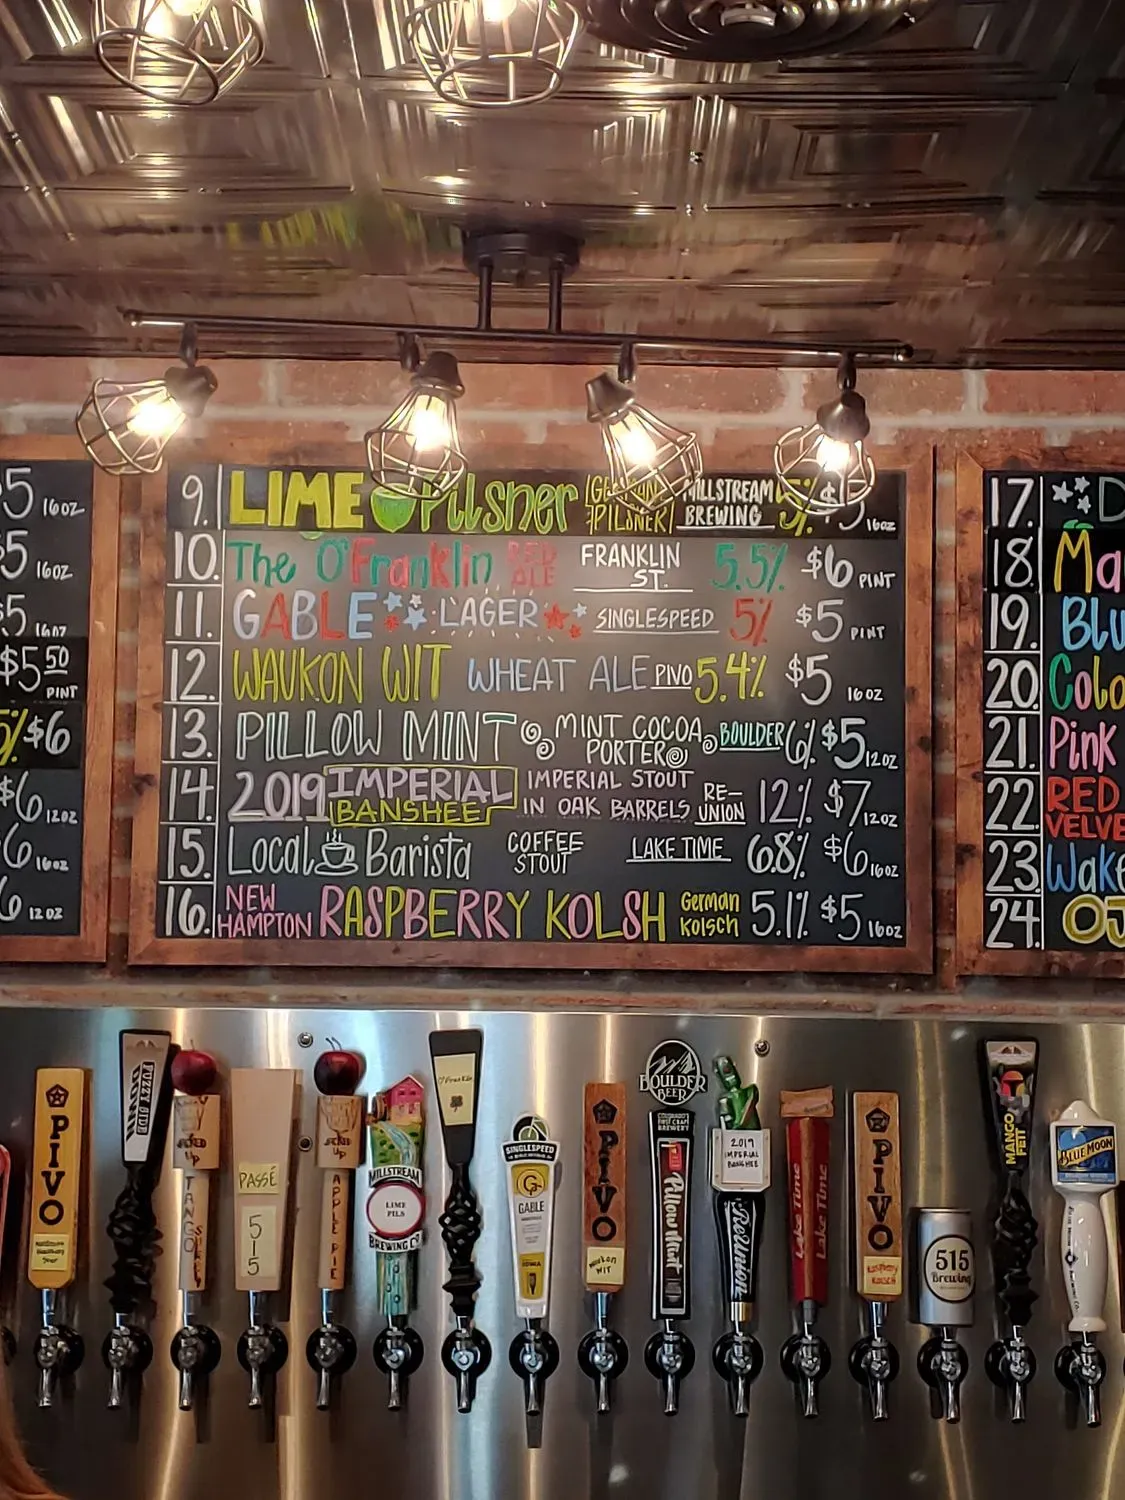 $5 16oz
$5 16oz
$5 16oz
$5 50 PINT
5% $6
$6 12oz
6 16oz
6 12oz
9. LIME Pilsner GERMAN PILSNER MILLSTREAM BREWING 5% $5 16oz
10. The O'Franklin RED ALE FRANKLIN ST. 5.5% $6 PINT
11. GABLE LAGER SINGLESPEED 5% $5 PINT
12. WAUKON WIT WHEAT ALE PIVO 5.4% $5 16oz
13. PILLOW MINT MINT COCOA PORTER BOULDER 6% $5 12oz
14. 2019 IMPERIAL BANSHEE IMPERIAL STOUT IN OAK BARRELS RE-UNION 12% $7 12oz
15. Local Barista COFFEE STOUT LAKE TIME 6.8% $6 16oz
16. NEW HAMPTON RASPBERRY KOLSH German Kolsch 5.1% $5 16oz
17. D
18. Ma
19. Blu
20. Colo
21. Pink
22. RED VELVE
23. Wake
24. OJ
PIVO
FUZZY SIDE DOWN
JACKED UP
TANGO
PASSÉ
515
JACKED UP
APPLE PIE
MILLSTREAM
LIME PILS
BREWING CO.
O'Franklin
SINGLESPEED
G
GABLE
IOWA
PIVO
Waukon WIT
BOULDER BEER
COLORADO'S FIRST CRAFT BREWERY
Pillow Mint
2019 IMPERIAL BANSHEE
ReUnion
Lake Time
Lake Time
PIVO
Raspberry Kolsch
515 Brewing
MANGO FETT
BLUE MOON